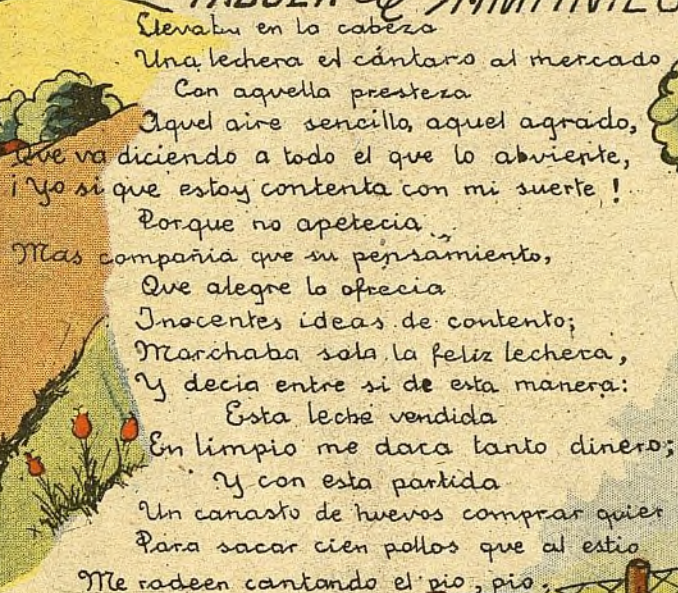 FABULA de SAMANIEGO
Llevaba en la cabeza
Una lechera el cántaro al mercado
Con aquella presteza
Aquel aire sencillo, aquel agrado,
Que va diciendo a todo el que lo abvierte,
¡Yo si que estoy contenta con mi suerte!
Porque no apetecia
Mas compañia que su pensamiento,
Que alegre la ofrecia
Inocentes ideas de contento;
Marchaba sola la feliz lechera,
Y decia entre si de esta manera:
Esta leche vendida
En limpio me daca tanto dinero;
Y con esta partida
Un canasto de huevos comprar quier
Para sacar cien pollos que al estio
Me rodeen cantando el pio, pio;